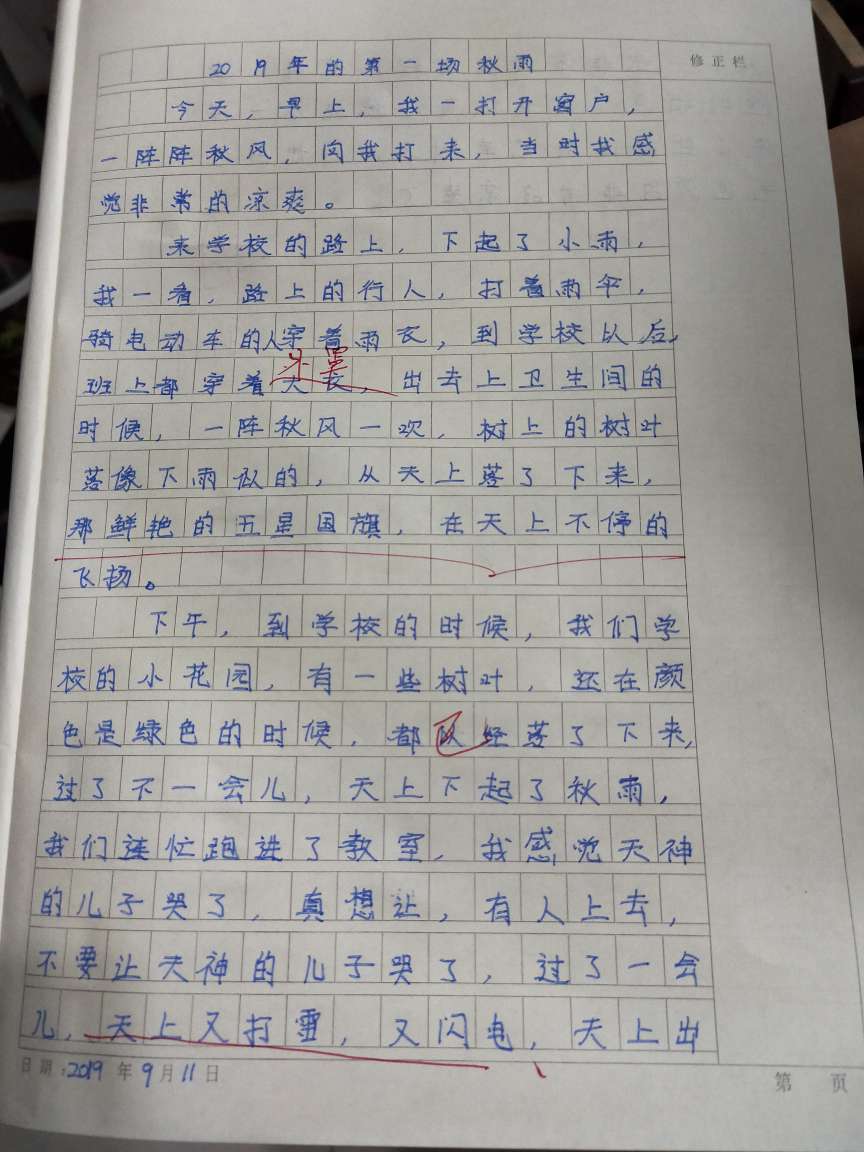 2019年的第一场秋雨
修正栏
今天,早上,我一打开窗户,
一阵阵秋风,向我打来,当时我感
觉非常的凉爽。
来学校的路上,下起了小雨,
我一看,路上的行人,打着雨伞,
骑电动车的人穿着雨衣,到学校以后,
班上都穿着大衣,出去上卫生间的
时候,一阵秋风一吹,树上的树叶
落像下雨似的,从天上落了下来,
那鲜艳的五星国旗,在天上不停的
飞扬。
下午,到学校的时候,我们学
校的小花园,有一些树叶,还在颜
色是绿色的时候,都以经落了下来,
过了不一会儿,天上下起了秋雨,
我们连忙跑进了教室,我感觉天神
的儿子哭了,真想让,有人上去,
不要让天神的儿子哭了,过了一会
儿,天上又打雷,又闪电,天上出
日期:2019年9月11日
第 页